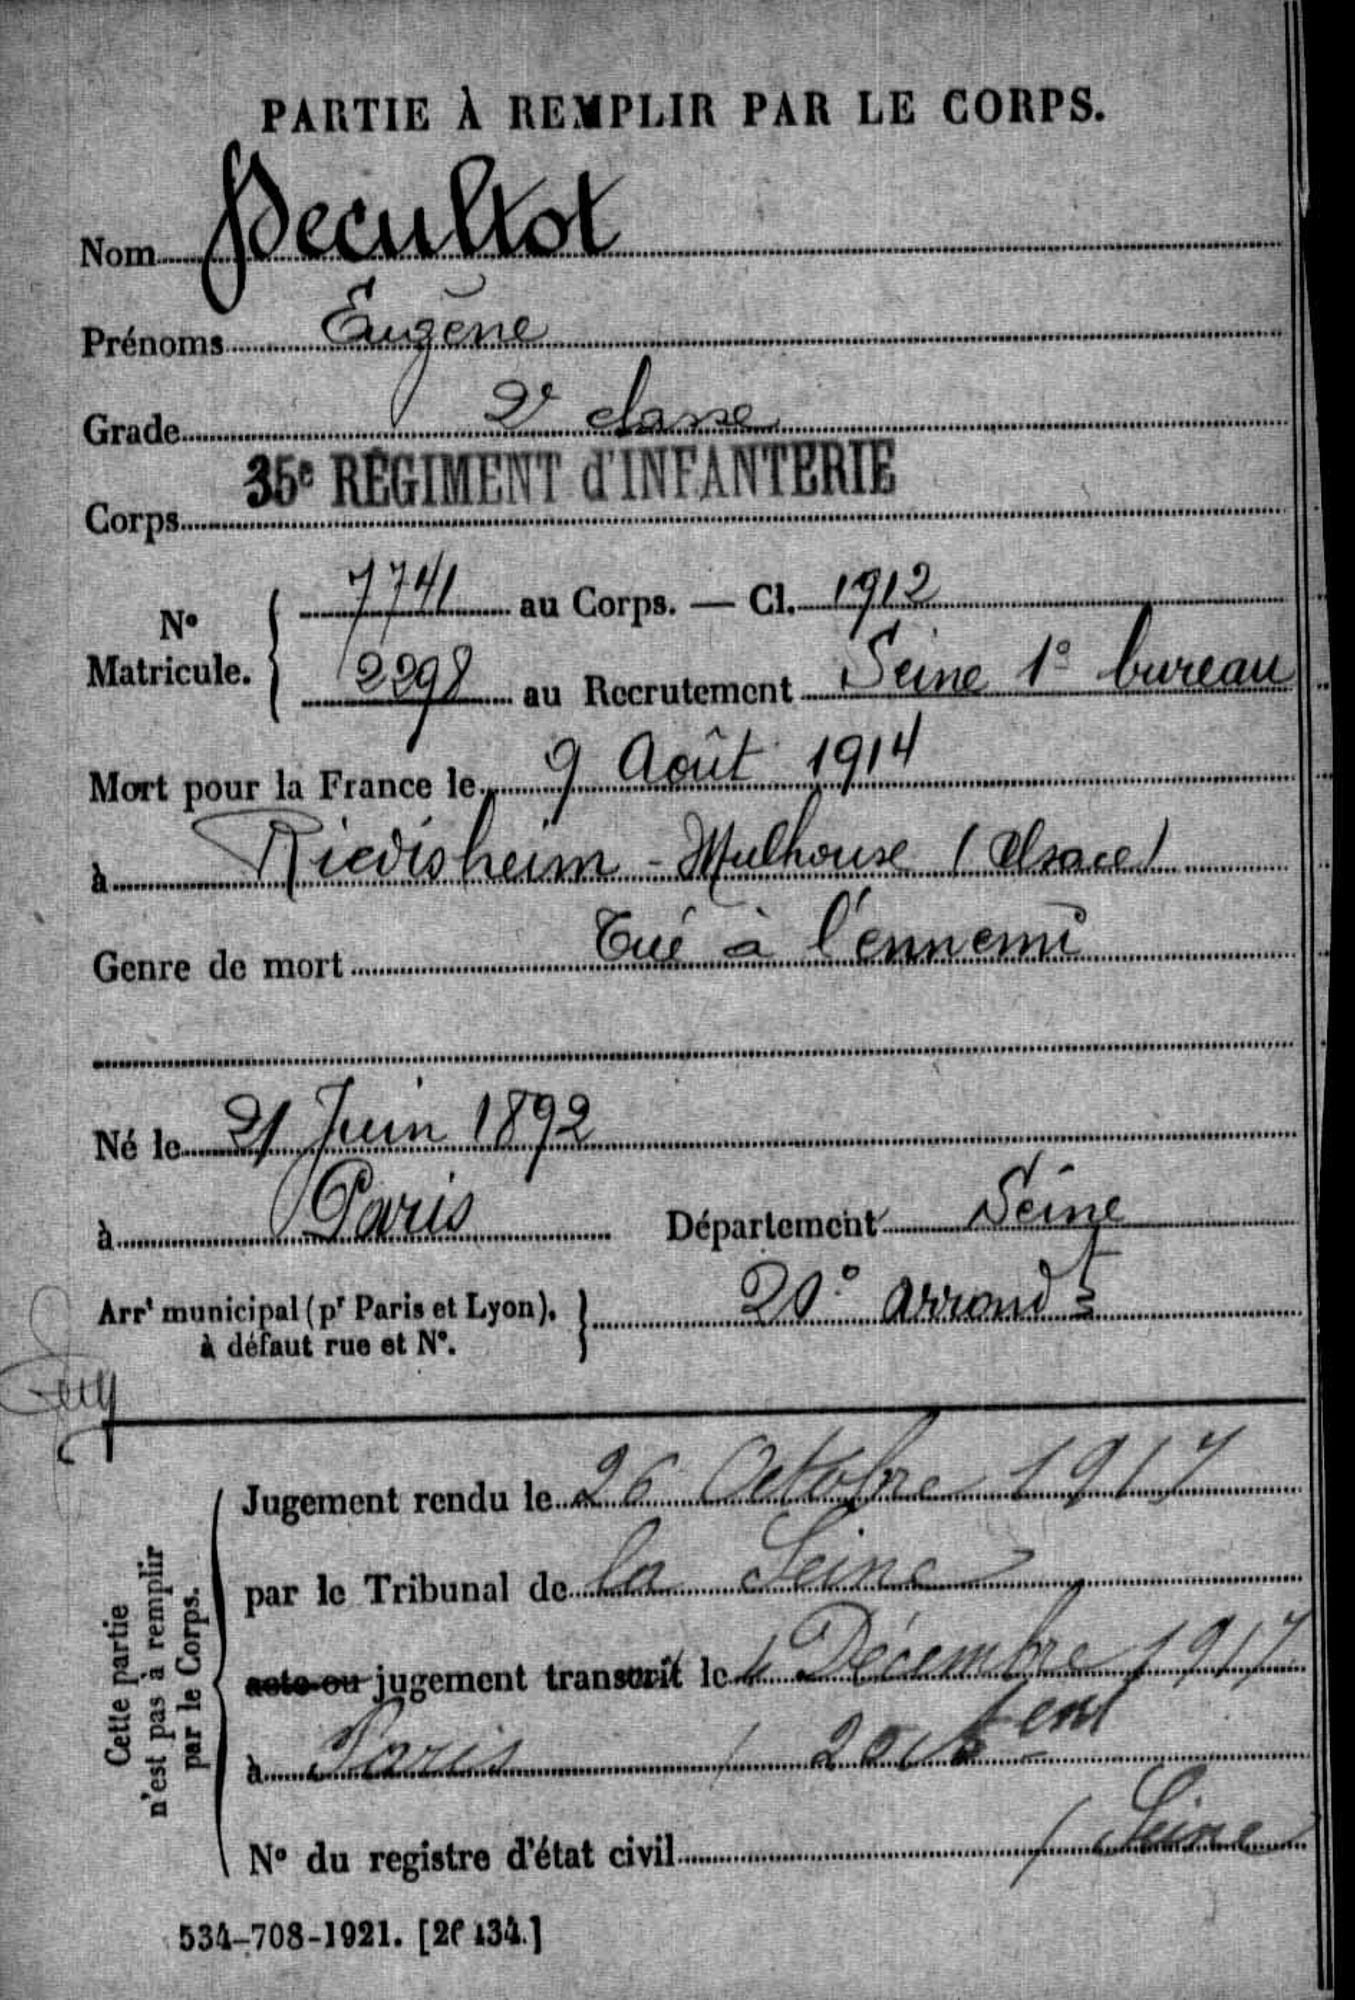 PARTIE À REMPLIR PAR LE CORPS.
Nom Decultot
Prénoms Eugène
Grade 2e classe
Corps 35e RÉGIMENT d'INFANTERIE
No Matricule. { 7741 au Corps. — Cl. 1912
2298 au Recrutement Seine 1o bureau
Mort pour la France le 9 Août 1914
à Riedisheim - Mulhouse (Alsace)
Genre de mort Tué à l'ennemi
Né le 21 Juin 1892
à Paris Département Seine
Arrt municipal (pr Paris et Lyon), à défaut rue et No. } 20o arrondt
Cette partie n'est pas à remplir par le Corps.
Jugement rendu le 26 Octobre 1917
par le Tribunal de la Seine
acte ou jugement transcrit le 4 Décembre 1917
à Paris 20
No du registre d'état civil Seine
534-708-1921. [26134.]